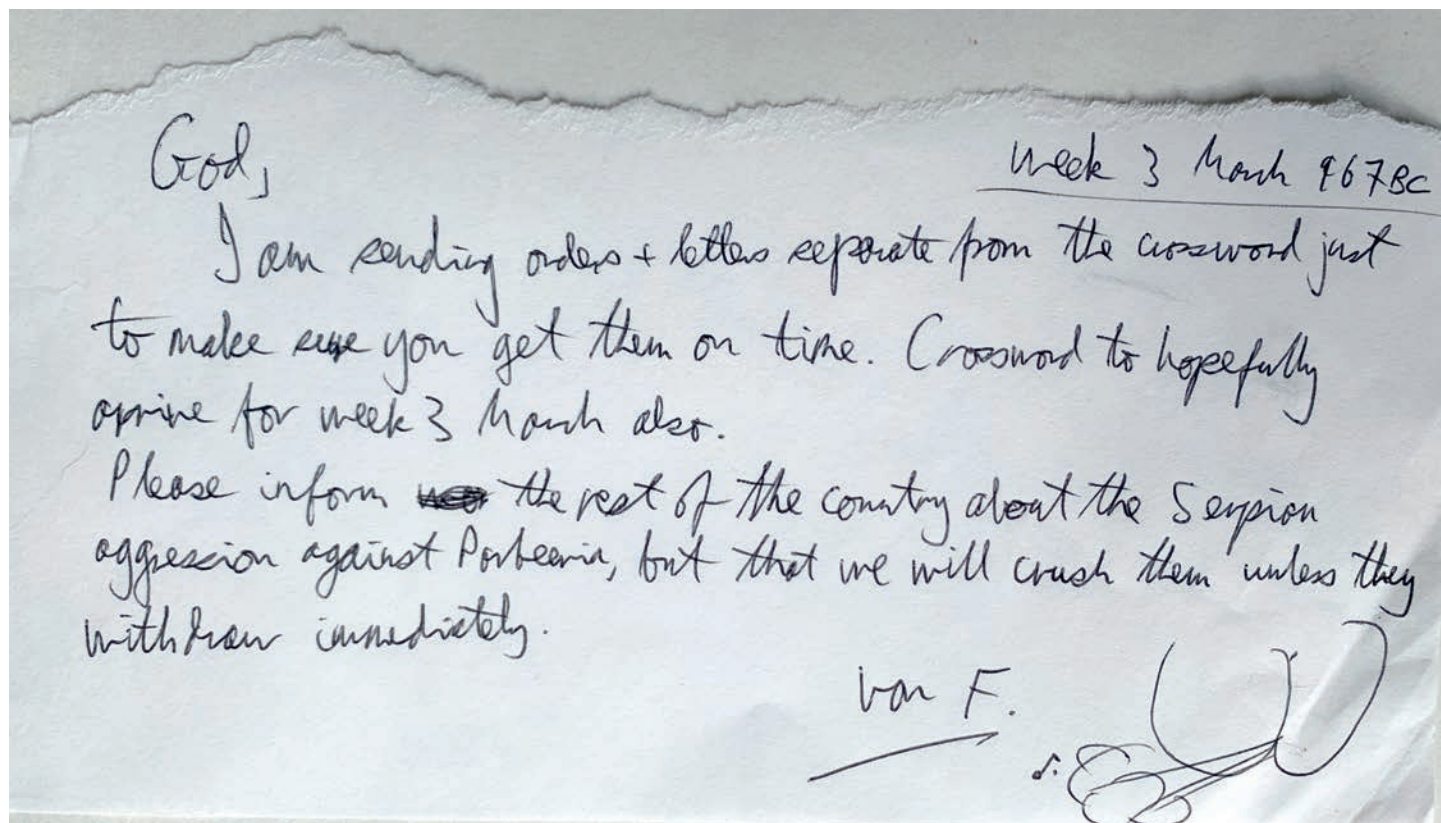 God,
week 3 March 967BC
I am sending orders + letters separate from the crossword just
to make sure you get them on time. Crossword to hopefully
arrive for week 3 March also.
Please inform the rest of the country about the Serpian
aggression against Porbeenia, but that we will crush them unless they
withdraw immediately.
von F.